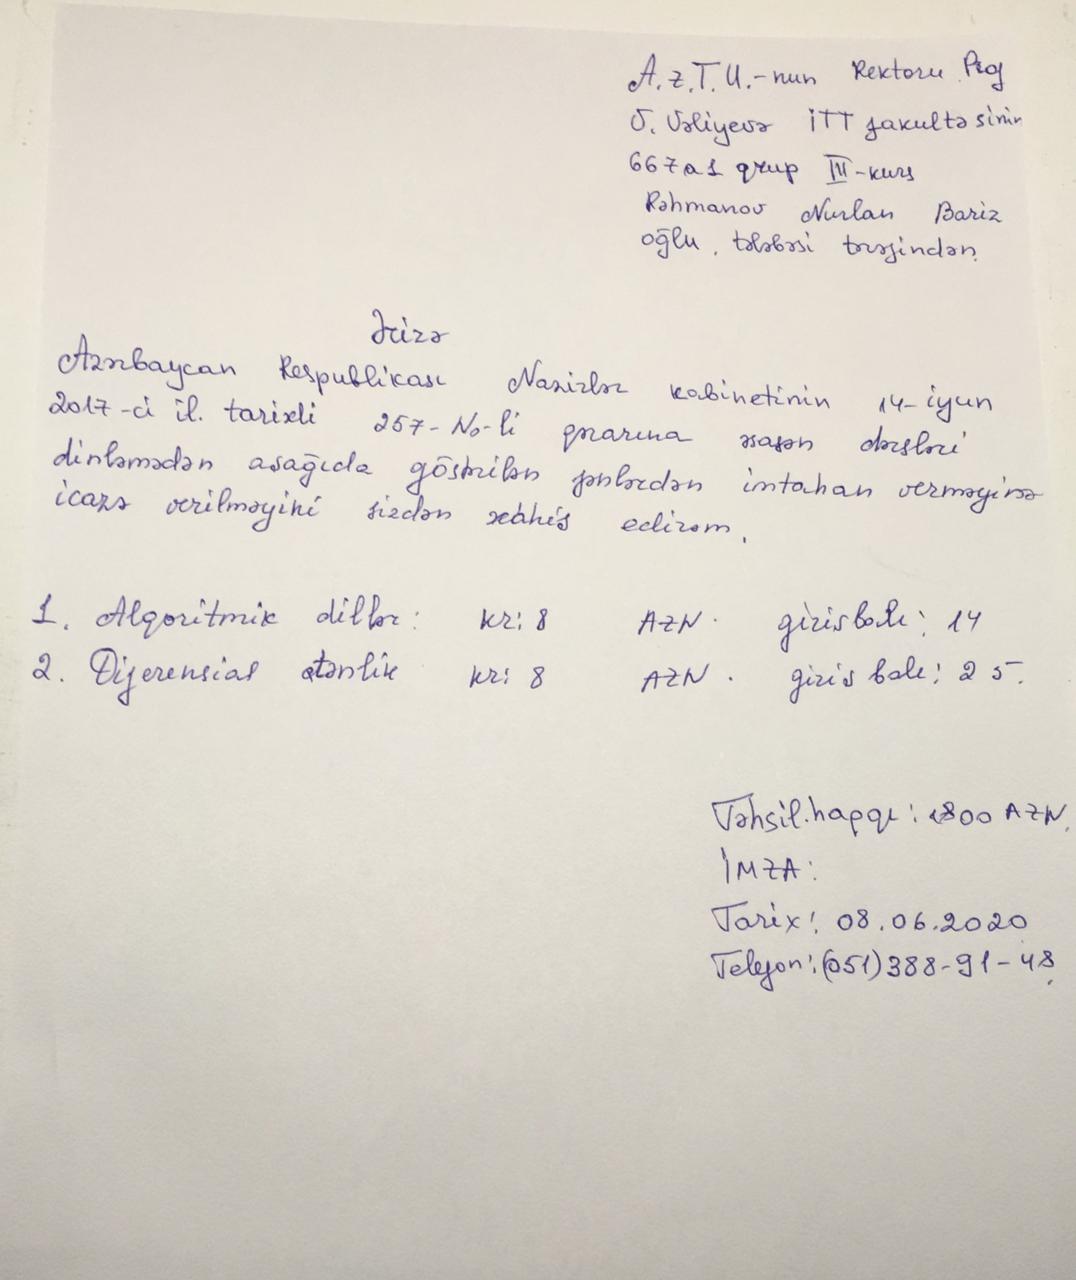 A.z.T.U.-nun Rektoru Prof
V. Vəliyevə İTT fakultəsinin
667a1 qrup III-kurs
Rəhmanov Nurlan Bariz
oğlu, tələbəsi tərəfindən.
Ərizə
Azərbaycan Respublikası Nazirlər kabinetinin 14-iyun
2017-ci il. tarixli 257-No-li qərarına əsasən dərsləri
dinləmədən asağıda göstərilən fənlərdən imtahan verməyimə
icazə verilməyini sizdən xahiş edirəm.
1. Alqoritmik dillər: kr: 8 AZN. giris balı: 14
2. Diferensial tənlik kr: 8 AZN. giris balı: 25.
Təhsil.haqqı: 1800 AZN.
İMZA:
Tarix: 08.06.2020
Telefon: (051)388-91-48.